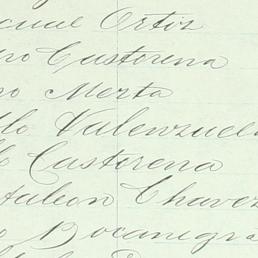 cual Ortiz
ro Castorena
no Merta
llo Valenzuel
lo Castorena
taleon Chavez
Bocanegra